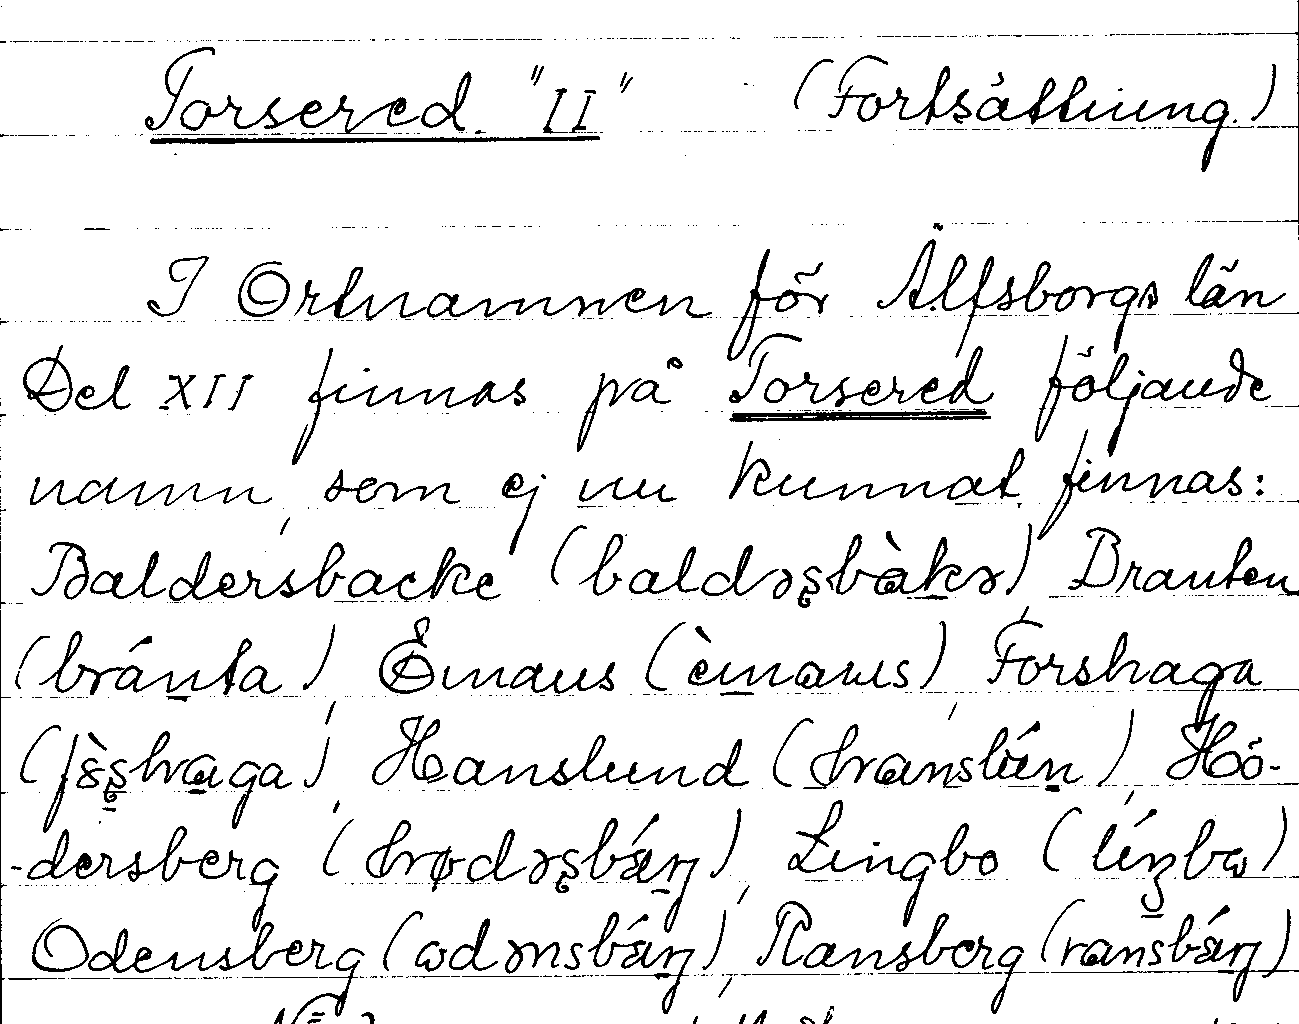 Torsered "II" (Fortsättning.)
I Ortnamnen för Älfsborgs län
Del XII finnas på Torsered följande
namn, som ej nu kunnat finnas:
Baldersbacke (baldəʂbàkə), Branten
(bránta), Emaus (èmaɯs), Forshaga
(fɛ̀ʂhaga), Hanslund (hanslún), Hö-
-dersberg (hødəʂbárj), Lingbo (líŋbɷ)
Odensberg (ɷdənsbárj), Ransberg (ransbárj)